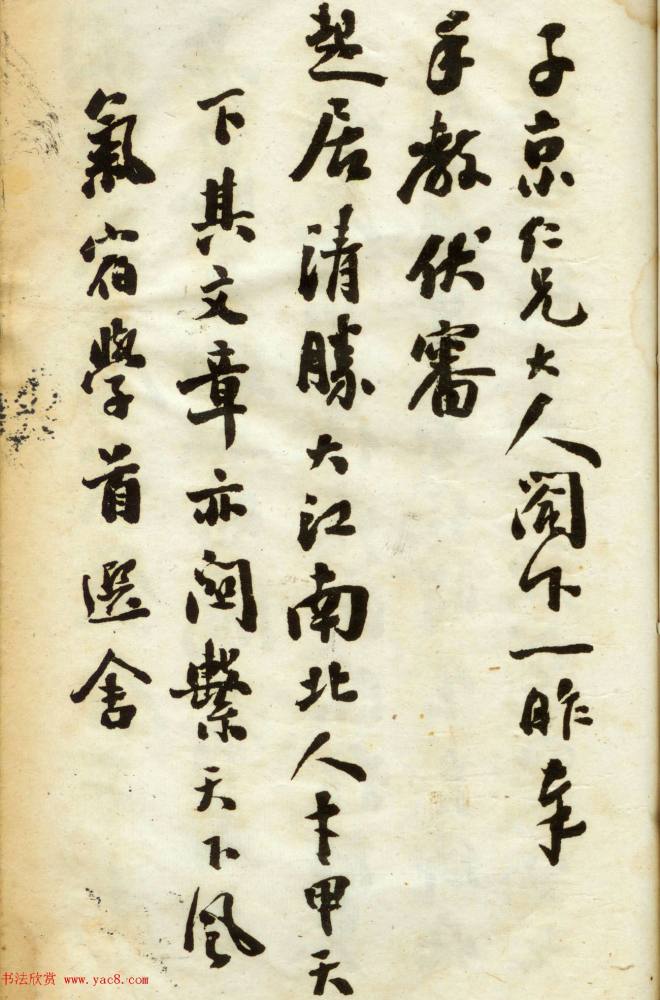 子京仁兄大人閣下一昨奉
手教伏審
起居清勝大江南北人才甲天
下其文章亦關繫天下風
氣宿學首選舍
书法欣赏 www.yac8.com